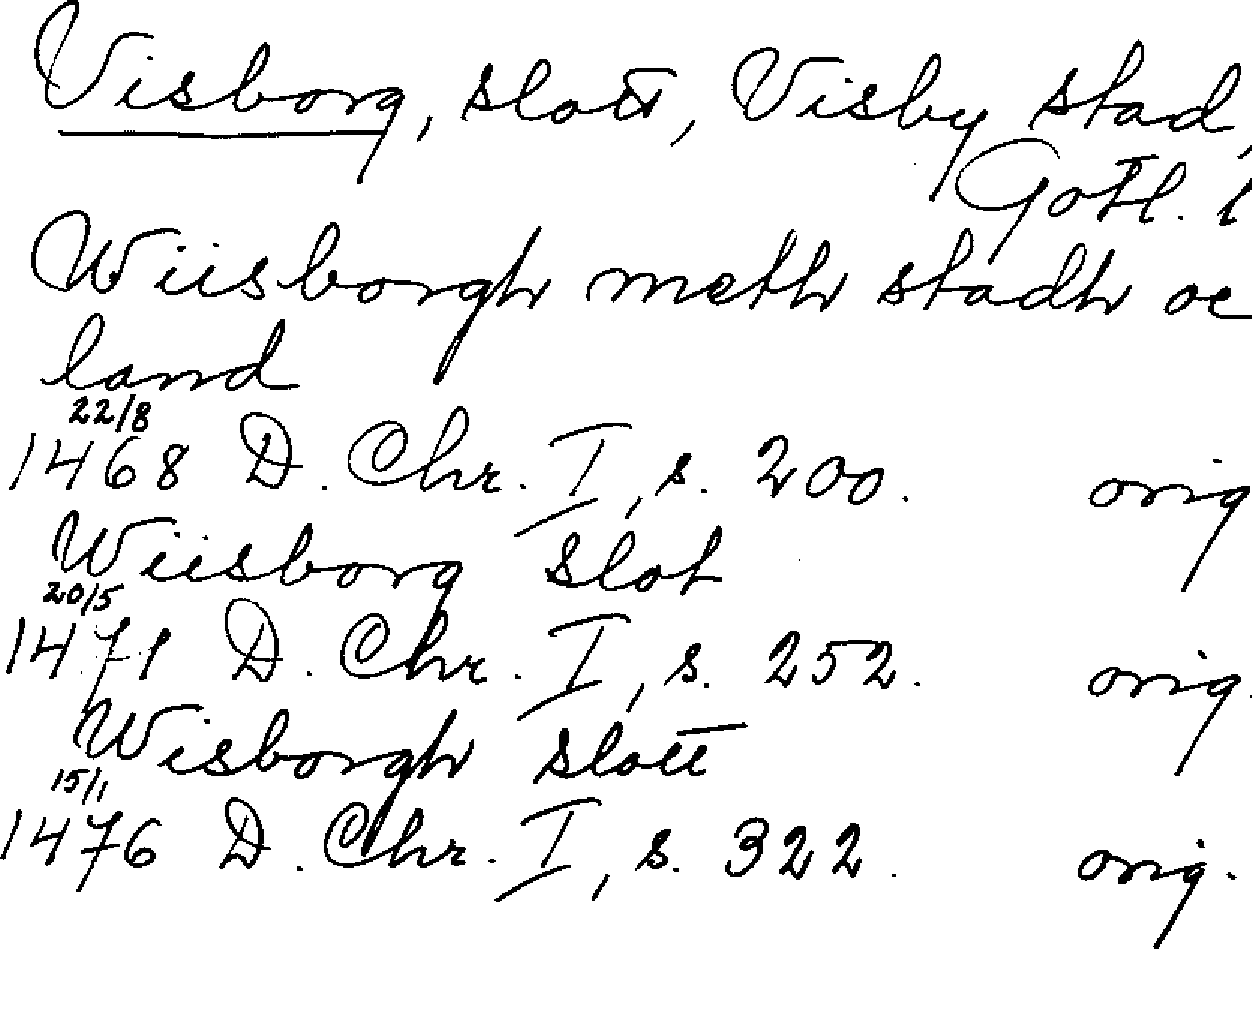 Visborg, slott, Visby stad,
Gotl. l
Wiisborgh meth stadh oc
land
22/8
1468 D. Chr. I, s. 200. orig
Wiisborg slot
20/5
1471 D. Chr. I, s. 252. orig.
Wisborgh slott
15/1
1476 D. Chr. I, s. 322. orig.